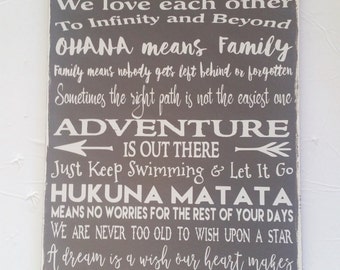 We love each other
To Infinity and Beyond
OHANA means Family
Family means nobody gets left behind or forgotten
Sometimes the right path is not the easiest one
ADVENTURE
IS OUT THERE
Just Keep Swimming & Let It Go
HUKUNA MATATA
MEANS NO WORRIES FOR THE REST OF YOUR DAYS
WE ARE NEVER TOO OLD TO WISH UPON A STAR
A dream is a wish our heart makes